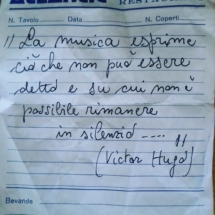 RESTAU
N. Tavolo Data N. Coperti
"La musica esprime
ciò che non può essere
detto e su cui non è
possibile rimanere
in silenzio ...."
(Victor Hugo)
Bevande